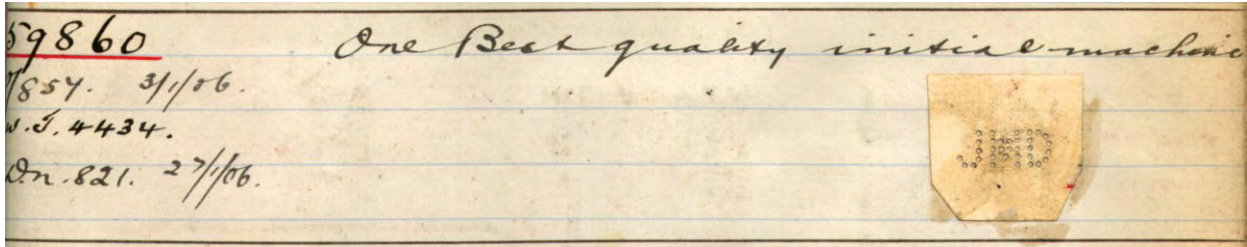 59860 One Best quality initial machine
7857. 3/1/06.
W.T. 4434.
Dn. 821. 27/1/06.
JMD